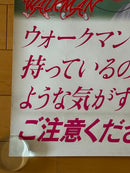 WALKMAN
ウォークマン
持っているの
ような気がす
ご注意くださ